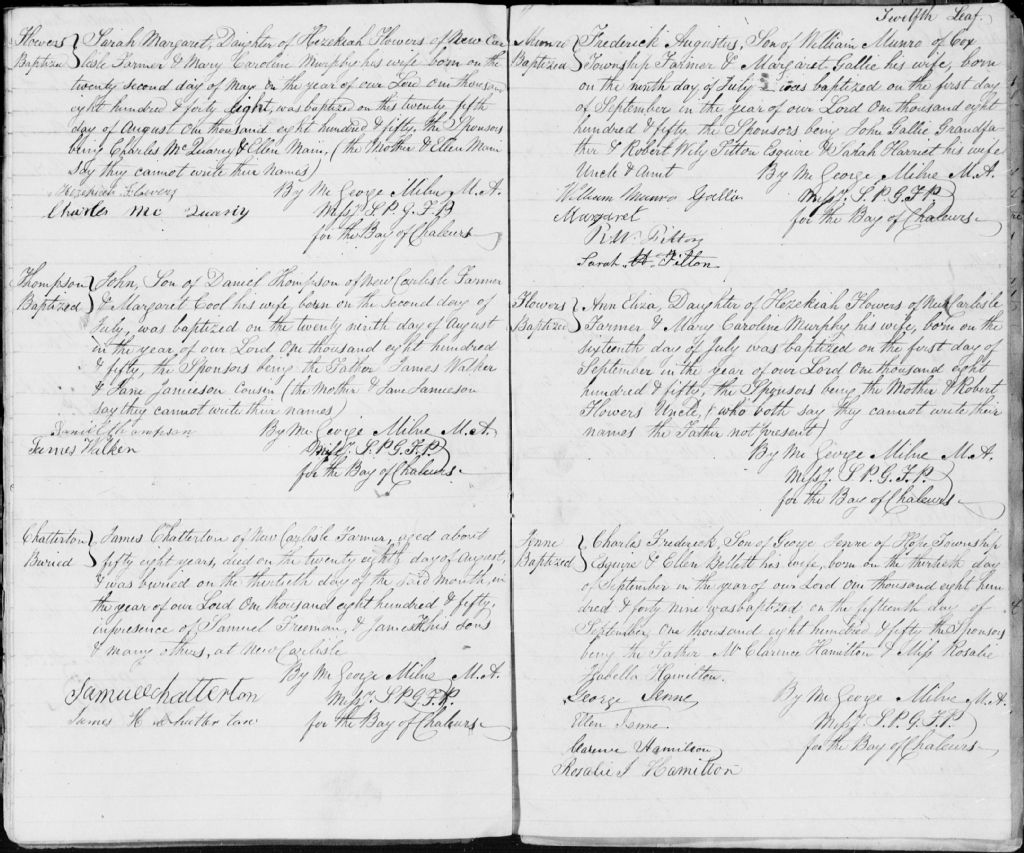 Flowers Baptized } Sarah Margaret, Daughter of Hezekiah Flowers of New Car
lisle Farmer & Mary Caroline Murphy his wife born on the
twenty second day of May in the year of our Lord one thousand
eight hundred & forty eight, was baptized on this twenty fifth
day of August one thousand eight hundred & fifty, the Sponsors
being Charles McQuarry & Ellen Main, (the Mother & Ellen Main
say they cannot write their names)
Hezekiah Flowers By Me George Milne M.A.
Charles Mc Quariy Missy. S.P.G.F.P
for the Bay of Chaleurs
Thompson Baptized } John, Son of Daniel Thompson of New Carlisle Farmer
& Margaret Cool his wife, born on the second day of
July, was baptized on the twenty ninth day of August
in the year of our Lord one thousand eight hundred
& fifty, the Sponsors being the Father James Walker
& Jane Jamieson Cousin (the Mother & Jane Jamieson
say they cannot write their names)
Daniel Thompson By Me George Milne M.A.
James Wilken Missy. S.P.G.F.P
for the Bay of Chaleurs.
Chatterton Buried } James Chatterton of New Carlisle Farmer, aged about
fifty eight years, died on the twenty eighth day of August,
& was buried on the thirtieth day of the said month, in
the year of our Lord One thousand eight hundred & fifty,
in presence of Samuel Freeman, & James H his sons
& many others, at New Carlisle
By Me George Milne M.A.
Samuel Chatterton Missy. S.P.G.F.P.
James H Chatterton for the Bay of Chaleurs.
Twelfth Leaf.
Munro Baptized } Frederick Augustus, Son of William Munro of Cox
Township Farmer & Margaret Gallie his wife, born
on the ninth day of July & was baptized on the first day
of September in the year of our Lord One thousand eight
hundred & fifty the Sponsors being John Gallie Grandfa
ther & Robert Wily Fitton Esquire & Sarah Harriot his wife
Uncle & Aunt By Me George Milne M.A.
William Munro Gallie Missy. S.P.G.F.P
Margaret for the Bay of Chaleurs.
R.W. Fitton
Sarah H. Fitton
Flowers Baptized } Ann Eliza, Daughter of Hezekiah Flowers of New Carlisle
Farmer & Mary Caroline Murphy his wife, born on the
sixteenth day of July was baptized on the first day of
September in the year of our Lord One thousand eight
hundred & fifty, the Sponsors being the Mother & Robert
Flowers Uncle, (who both say they cannot write their
names the Father not present)
By Me George Milne M.A.
Missy. S.P.G.F.P
for the Bay of Chaleurs.
Jenne Baptized } Charles Frederick, Son of George Jenne of Hope Township
Esquire & Ellen Bellett his wife, born on the thirtieth day
of September in the year of our Lord one thousand eight hun
dred & forty nine was baptized on the fifteenth day of
September one thousand eight hundred & fifty the Sponsors
being the Father Mr Clarence Hamilton & Miss Rosalie
Isabella Hamilton.
George Jenne By Me George Milne M.A.
Ellen Jenne Missy. S.P.G.F.P.
Clarence Hamilton for the Bay of Chaleurs
Rosalie I Hamilton